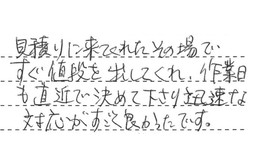 見積りに来てくれたその場で
すぐ値段を出してくれ、作業日
も直近で決めて下さり迅速な
対応がすごく良かったです。